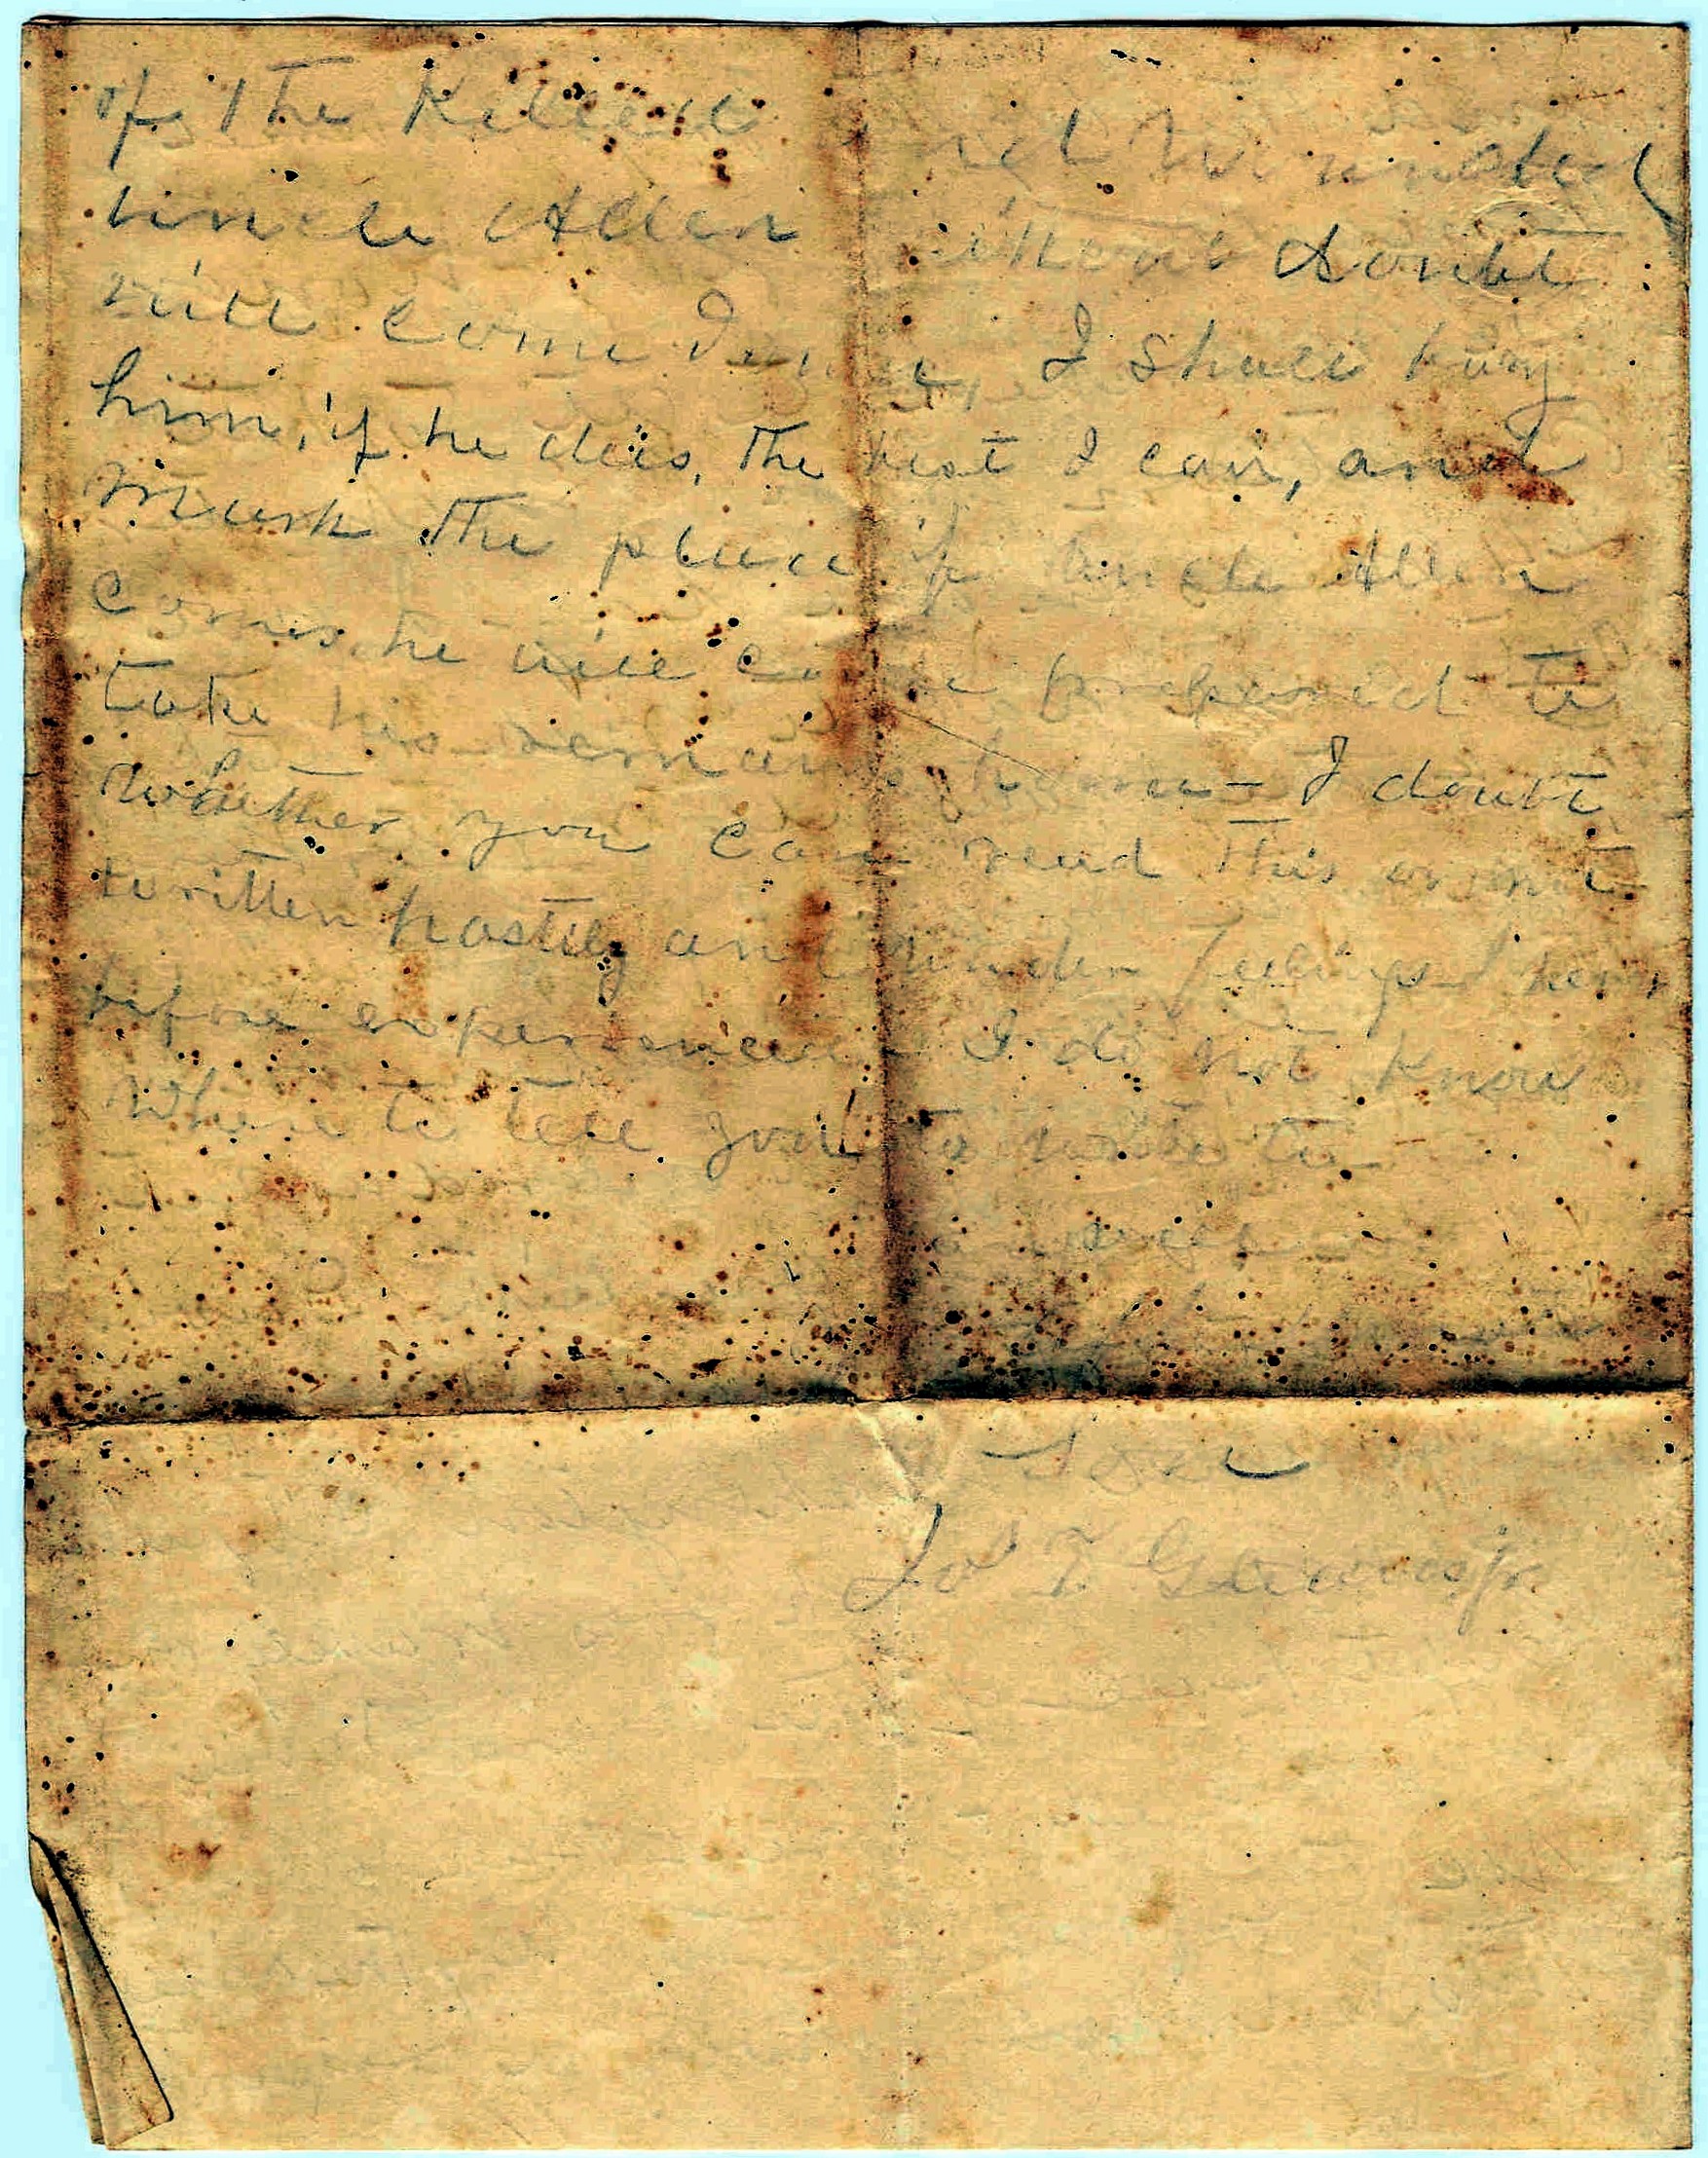 of the Killed and Wounded
Uncle Allen without doubt
will come I shall bury
him, if he dies, the best I can, and
mark the place if Uncle Allen
comes he will come prepared to
take his remains home - I doubt
whether you can read this or not
written hastily and under feelings I never
before experienced I do not know
where to tell you to write to